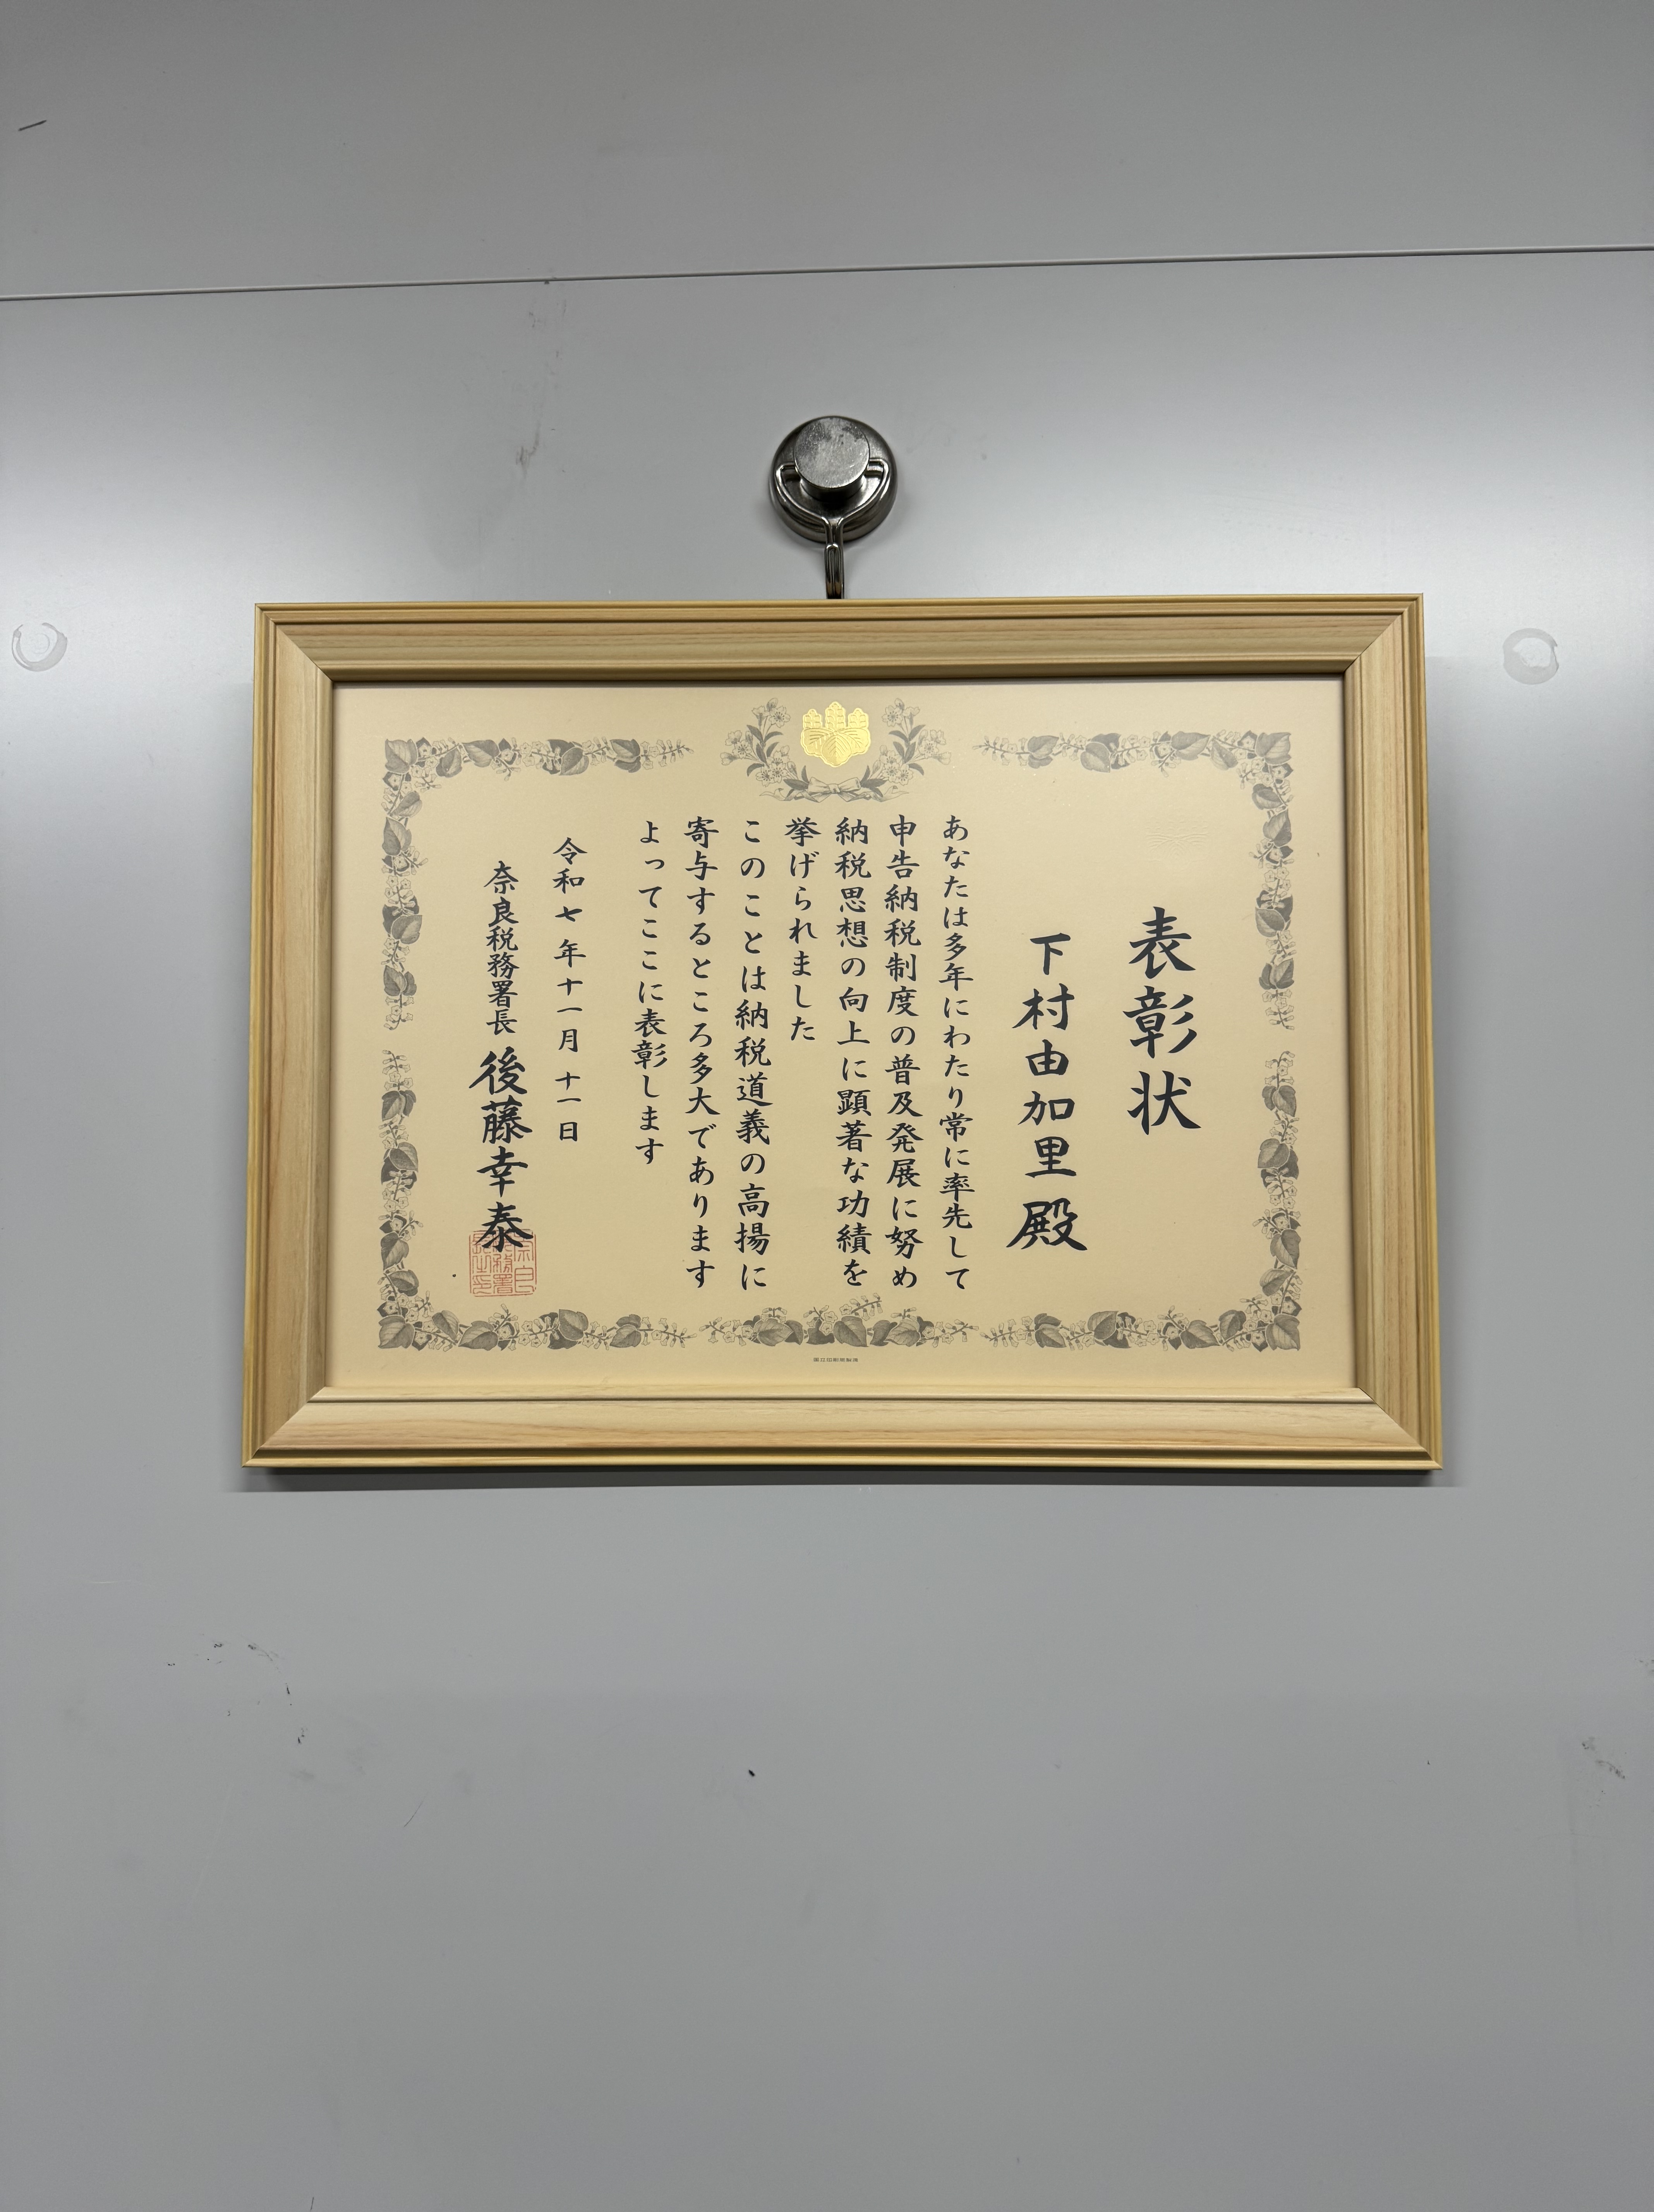 表彰状
下村由加里殿
あなたは多年にわたり常に率先して
申告納税制度の普及発展に努め
納税思想の向上に顕著な功績を
挙げられました
このことは納税道義の高揚に
寄与するところ多大であります
よってここに表彰します
令和七年十一月十一日
奈良税務署長 後藤幸泰
奈良税務署長之印
国立印刷局製造